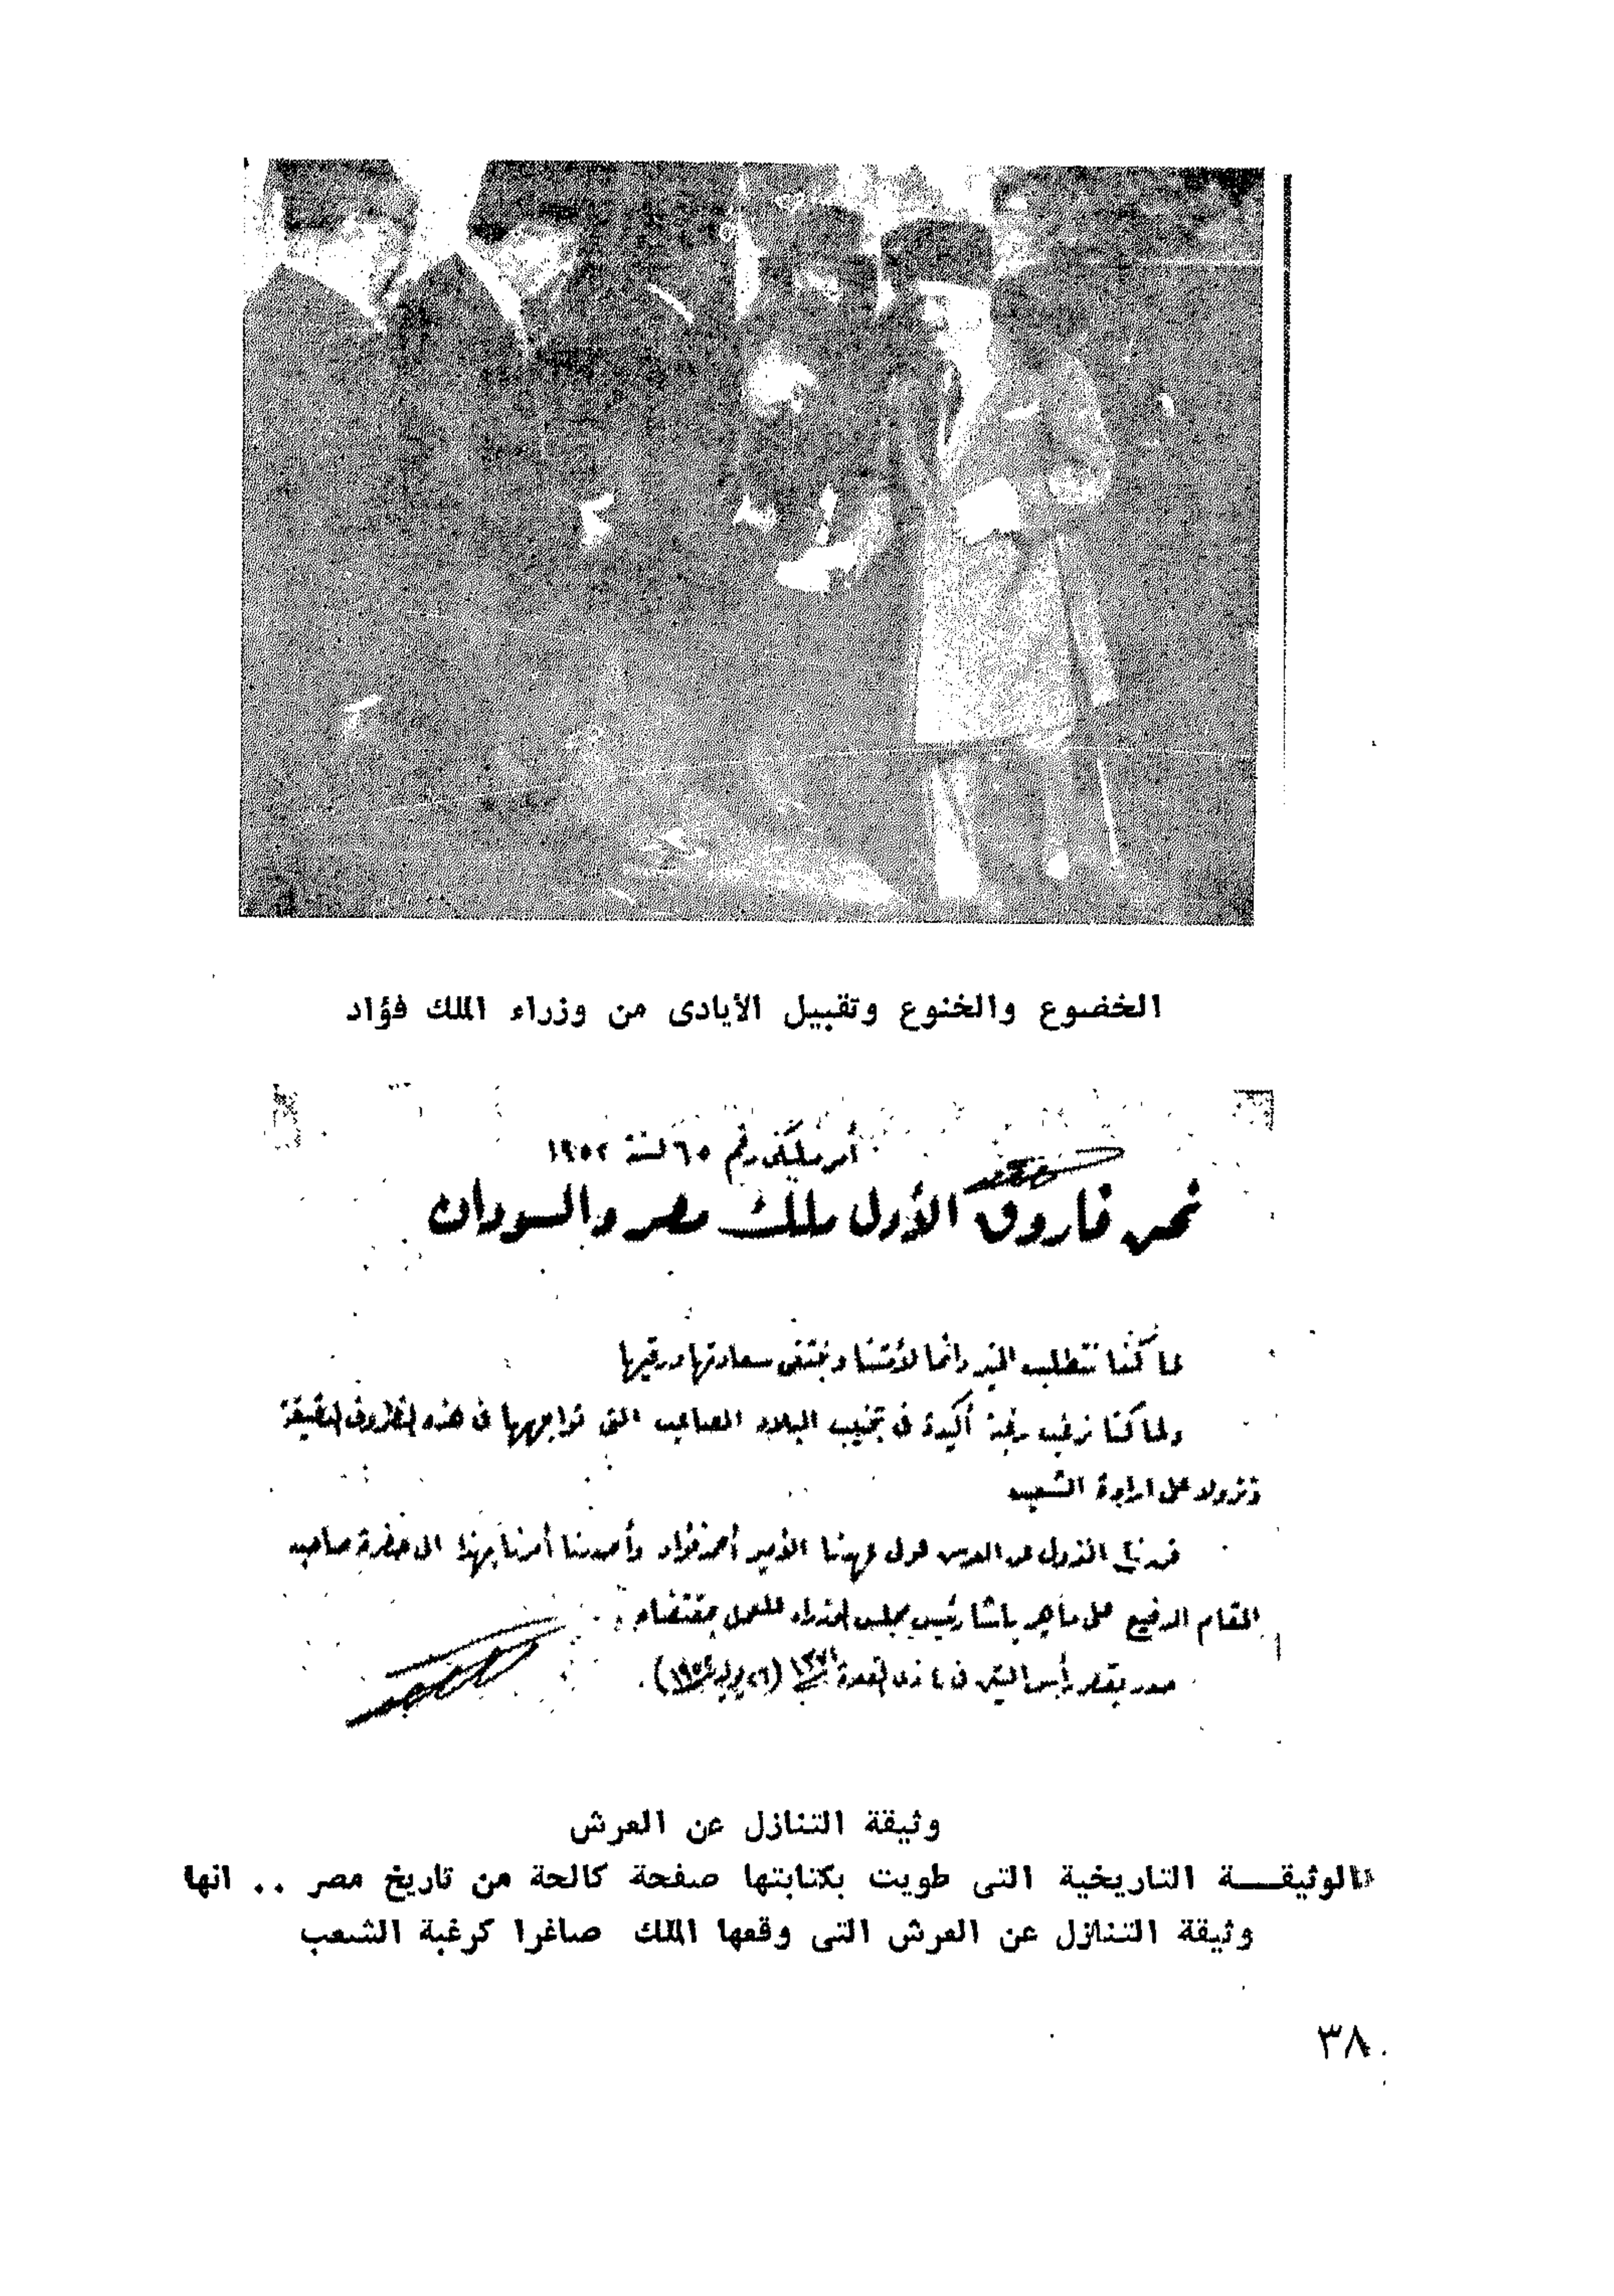 الخضوع والخنوع وتقبيل الأيادى من وزراء الملك فؤاد
أمر ملكى رقم ٦٥ لسنة ١٩٥٢
نحن فاروق الأول ملك مصر والسودان
لما كنا نتطلب الخير دائما لأمتنا ونبتغى سعادتها ورقيها
ولما كنا نرغب رغبة أكيدة فى تجنيب البلاد المصاعب التى تواجهها فى هذه الظروف الدقيقة
ونزولا على ارادة الشعب
قررنا النزول عن العرش لولى عهدنا الأمير أحمد فؤاد وأصدرنا أمرنا بهذا الى حضرة صاحب
المقام الرفيع على ماهر باشا رئيس مجلس الوزراء للعمل بمقتضاه
صدر بقصر رأس التين فى ٤ ذى القعدة ١٣٧١ (٢٦ يوليو ١٩٥٢) .
وثيقة التنازل عن العرش
«الوثيقـــة التاريخية التى طويت بكتابتها صفحة كالحة من تاريخ مصر .. انها
وثيقة التنازل عن العرش التى وقعها الملك صاغرا كرغبة الشعب
٣٨